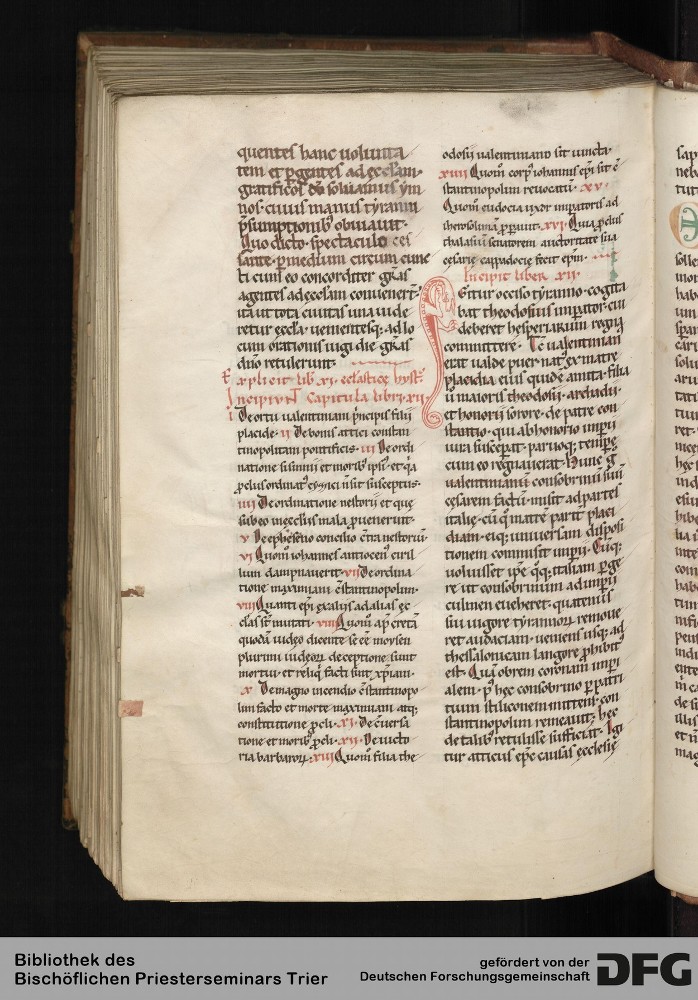 quentes hanc uolunta
tem et ꝑgentes ad ęcclam·
gratificꝰ dō soluamus ym
nos· cuius manus tyranni
p̄sumptionibꝰ obuiauit·
Quo dicto· spectaculo ces
sante· ꝑ medium circum cunc
ti cum eo concorditer gr̄as
agentes ad ęcclam conuener̄t·
ita ut tota ciuitas una uide
retur ęccla· uementesq; ad lo
cum orationis iugi die gr̄as
dn̄o retulerunt·
Explicit lib· xi· ecl̄astice hyst̄·
Incipiunt Capitula libri· xii
i De ortu ualentiniani p̄ncipis filii
placidę· ii De bonis attici constan
tinopolitani pontificis· iii De ordi
natione sisinnii et moribꝰ ipsiꝰ· et qͣ
susceptus·
iiii De ordinatione nestorii et quę
sub eo in ęccl̄is mala ꝓuenerunt·
v De epheseno concilio cͦtra nestoriū·
vi Quom̄ iohannes antiocenꝰ ciril
lum dampnauerit· vii De ordina
tione maximiani ↄstantinopolim·
viii Quanti ep̄i ex aliis ad alias ęc
cl̄as st̄ mutati· viiii Quom̄ ap̄ cretā
quodā iudęo dicente se eē moysen
plurimi iudeoꝝ deceptione sunt
mortui· et reliq̄ facti sunt xp̄iani·
x· De magno incendio ↄstantinopo
lim facto et morte maximiani atq;
constitutione ꝓcli· xi· De ↄuersa
tione et moribꝰ ꝓcli· xii· De uicto
ria barbaroꝝ· xiii Quom̄ filia the
odosii ualentiniano sit iuncta·
xiiii Quom̄ corpꝰ iohannis ep̄i sit ↄ
stantinopolim reuocatū· xv·
Quom̄ eudocia uxor imꝑatoris ad
iherosolimā ꝓperauit· xvi· Quia ꝓclus
thalasiū senatorem auctoritate sua
cęsarię cappadocię fecit ep̄m·
Incipit liber xii·
Igitur occiso tyranno· cogita
bat theodosius imꝑator· cui
deberet hesperiarum regna
committere· Et̄ ualentinian
erat ualde puer· natꝰ ex matre
placidia· eiꝰ quidē amita· filia
u̇ maioris theodosii· archadii
et honorii sorore· de patre con
stantio· qui ab honorio imp̄ii
iura susceperat· paruoq; tempr̄e
cum eo regnauerat· Hunc g̊
ualentinianū consobrinū suū
cęsarem factū· misit ad partes
italię· cū qͦ matrē parit̄ placi
diam· eiq; uniuersam disposi
tionem commisit imp̄ii· Cūq;
uoluisset ip̄e qͦq; italiam ꝑge
re ut consobrinum ad imp̄ii
culmen eueheret· quatenus
sui uigore tyrannoꝝ remoue
ret audaciam· ueniens usq; ad
thessalonicam langore ꝓhibitꝰ
est· Quāobrem coronam imp̄i
alem· p̄ hęc consobrino ꝑ patri
tium stiliconem mittens· con
stantinopolim remeauit· hęc
de talibꝰ retulisse sufficiat· Igi
tur atticus ep̄c causas ęcclesię
Bibliothek des
Bischöflichen Priesterseminars Trier
gefördert von der
Deutschen Forschungsgemeinschaft
DFG